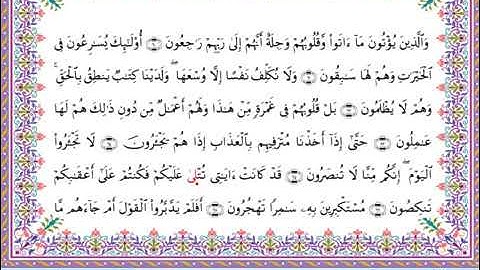 وَٱلَّذِينَ يُؤْتُونَ مَآ ءَاتَوا۟ وَّقُلُوبُهُمْ وَجِلَةٌ أَنَّهُمْ إِلَىٰ رَبِّهِمْ رَٰجِعُونَ ۝ أُو۟لَـٰٓئِكَ يُسَـٰرِعُونَ فِى
ٱلْخَيْرَٰتِ وَهُمْ لَهَا سَـٰبِقُونَ ۝ وَلَا نُكَلِّفُ نَفْسًا إِلَّا وُسْعَهَا ۖ وَلَدَيْنَا كِتَـٰبٌ يَنطِقُ بِٱلْحَقِّ ۚ
وَهُمْ لَا يُظْلَمُونَ ۝ بَلْ قُلُوبُهُمْ فِى غَمْرَةٍ مِّنْ هَـٰذَا وَلَهُمْ أَعْمَـٰلٌ مِّن دُونِ ذَٰلِكَ هُمْ لَهَا
عَـٰمِلُونَ ۝ حَتَّىٰٓ إِذَآ أَخَذْنَا مُتْرَفِيهِم بِٱلْعَذَابِ إِذَا هُمْ يَجْـَٔرُونَ ۝ لَا تَجْـَٔرُوا۟
ٱلْيَوْمَ ۖ إِنَّكُم مِّنَّا لَا تُنصَرُونَ ۝ قَدْ كَانَتْ ءَايَـٰتِى تُتْلَىٰ عَلَيْكُمْ فَكُنتُمْ عَلَىٰٓ أَعْقَـٰبِكُمْ
تَنكِصُونَ ۝ مُسْتَكْبِرِينَ بِهِۦ سَـٰمِرًا تَهْجُرُونَ ۝ أَفَلَمْ يَدَّبَّرُوا۟ ٱلْقَوْلَ أَمْ جَآءَهُم مَّا